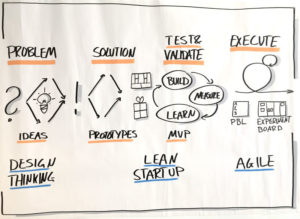 PROBLEM
SOLUTION
TEST &
VALIDATE
EXECUTE
?
!
BUILD
MEASURE
LEARN
IDEAS
PROTOTYPES
MVP
PBL
EXPERIMENT
BOARD
DESIGN
THINKING
LEAN
STARTUP
AGILE